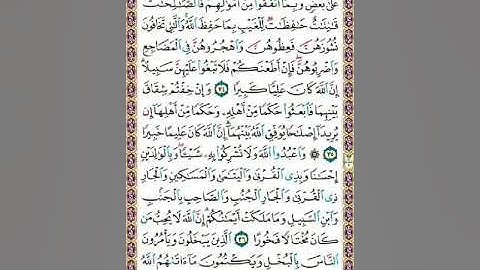 عَلَىٰ بَعْضٍ وَبِمَا أَنفَقُوا مِنْ أَمْوَالِهِمْ فَالصَّالِحَاتُ
قَانِتَاتٌ حَافِظَاتٌ لِّلْغَيْبِ بِمَا حَفِظَ اللَّهُ وَالَّاتِي تَخَافُونَ
نُشُوزَهُنَّ فَعِظُوهُنَّ وَاهْجُرُوهُنَّ فِي الْمَضَاجِعِ
وَاضْرِبُوهُنَّ فَإِنْ أَطَعْنَكُمْ فَلَا تَبْغُوا عَلَيْهِنَّ سَبِيلًا
إِنَّ اللَّهَ كَانَ عَلِيًّا كَبِيرًا ٣٤ وَإِنْ خِفْتُمْ شِقَاقَ
بَيْنِهِمَا فَابْعَثُوا حَكَمًا مِّنْ أَهْلِهِ وَحَكَمًا مِّنْ أَهْلِهَا إِن
يُرِيدَا إِصْلَاحًا يُوَفِّقِ اللَّهُ بَيْنَهُمَا إِنَّ اللَّهَ كَانَ عَلِيمًا خَبِيرًا
٣٥ ۞ وَاعْبُدُوا اللَّهَ وَلَا تُشْرِكُوا بِهِ شَيْئًا وَبِالْوَالِدَيْنِ
إِحْسَانًا وَبِذِي الْقُرْبَىٰ وَالْيَتَامَىٰ وَالْمَسَاكِينِ وَالْجَارِ
ذِي الْقُرْبَىٰ وَالْجَارِ الْجُنُبِ وَالصَّاحِبِ بِالْجَنبِ
وَابْنِ السَّبِيلِ وَمَا مَلَكَتْ أَيْمَانُكُمْ إِنَّ اللَّهَ لَا يُحِبُّ مَن
كَانَ مُخْتَالًا فَخُورًا ٣٦ الَّذِينَ يَبْخَلُونَ وَيَأْمُرُونَ
النَّاسَ بِالْبُخْلِ وَيَكْتُمُونَ مَا آتَاهُمُ اللَّهُ